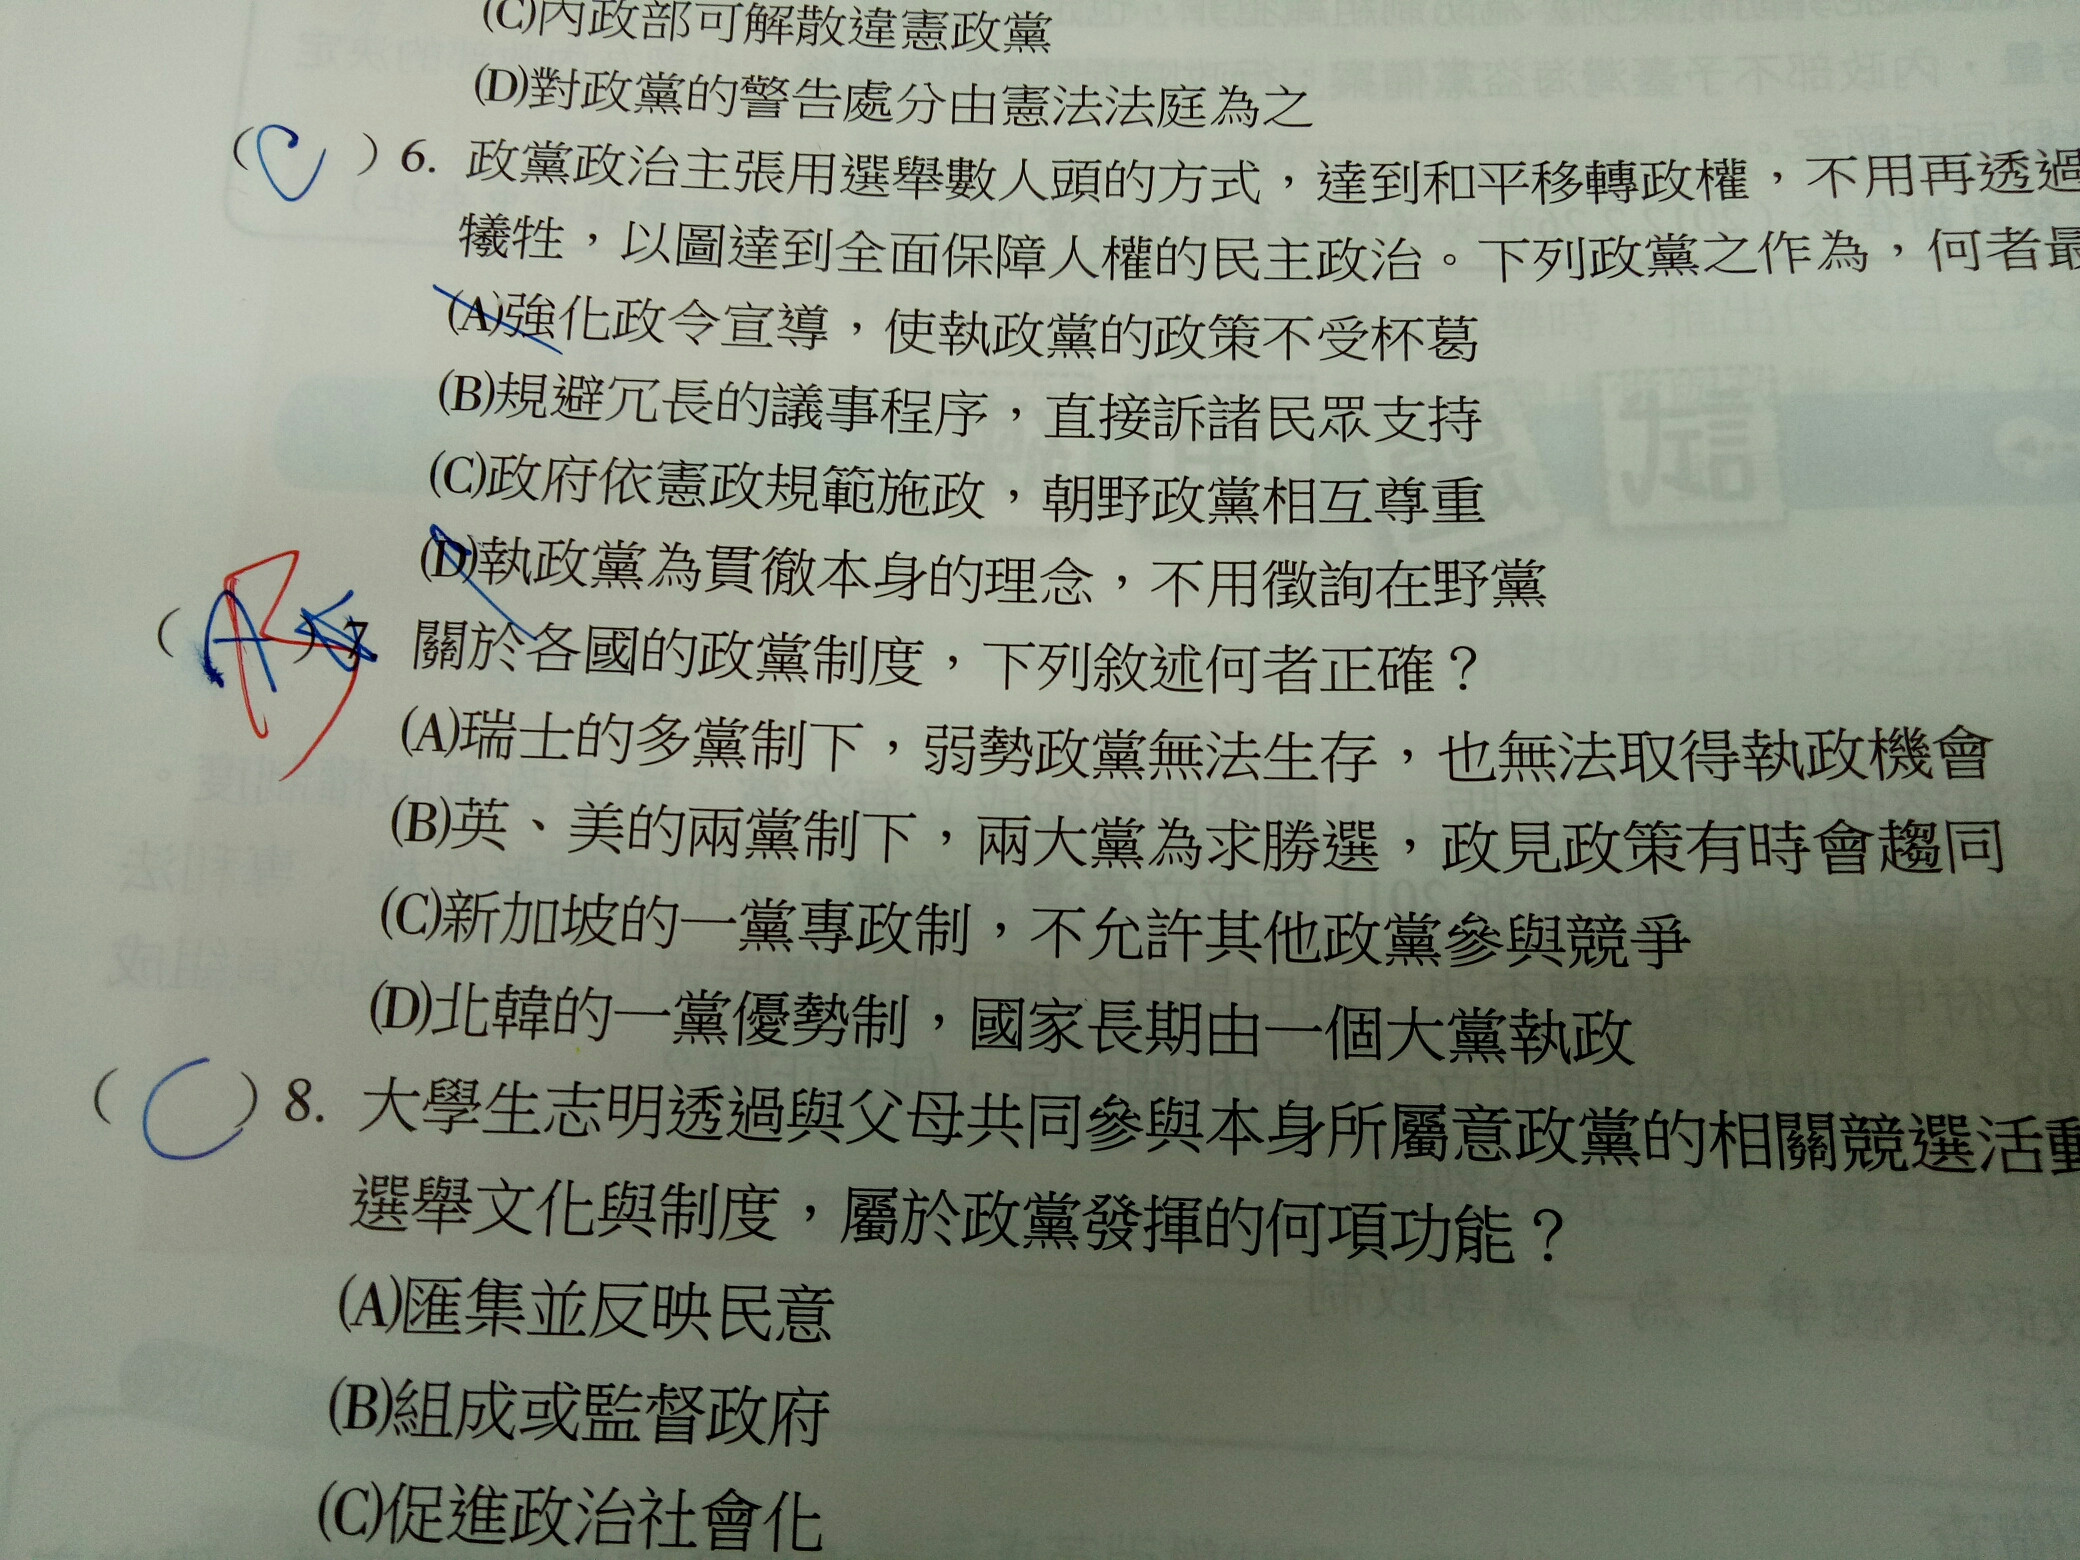 (C)內政部可解散違憲政黨
(D)對政黨的警告處分由憲法法庭為之
( C ) 6. 政黨政治主張用選舉數人頭的方式，達到和平移轉政權，不用再透過
犧牲，以圖達到全面保障人權的民主政治。下列政黨之作為，何者最
(A)強化政令宣導，使執政黨的政策不受杯葛
(B)規避冗長的議事程序，直接訴諸民眾支持
(C)政府依憲政規範施政，朝野政黨相互尊重
(D)執政黨為貫徹本身的理念，不用徵詢在野黨
( A B ) 7. 關於各國的政黨制度，下列敘述何者正確？
(A)瑞士的多黨制下，弱勢政黨無法生存，也無法取得執政機會
(B)英、美的兩黨制下，兩大黨為求勝選，政見政策有時會趨同
(C)新加坡的一黨專政制，不允許其他政黨參與競爭
(D)北韓的一黨優勢制，國家長期由一個大黨執政
( C ) 8. 大學生志明透過與父母共同參與本身所屬意政黨的相關競選活動
選舉文化與制度，屬於政黨發揮的何項功能？
(A)匯集並反映民意
(B)組成或監督政府
(C)促進政治社會化